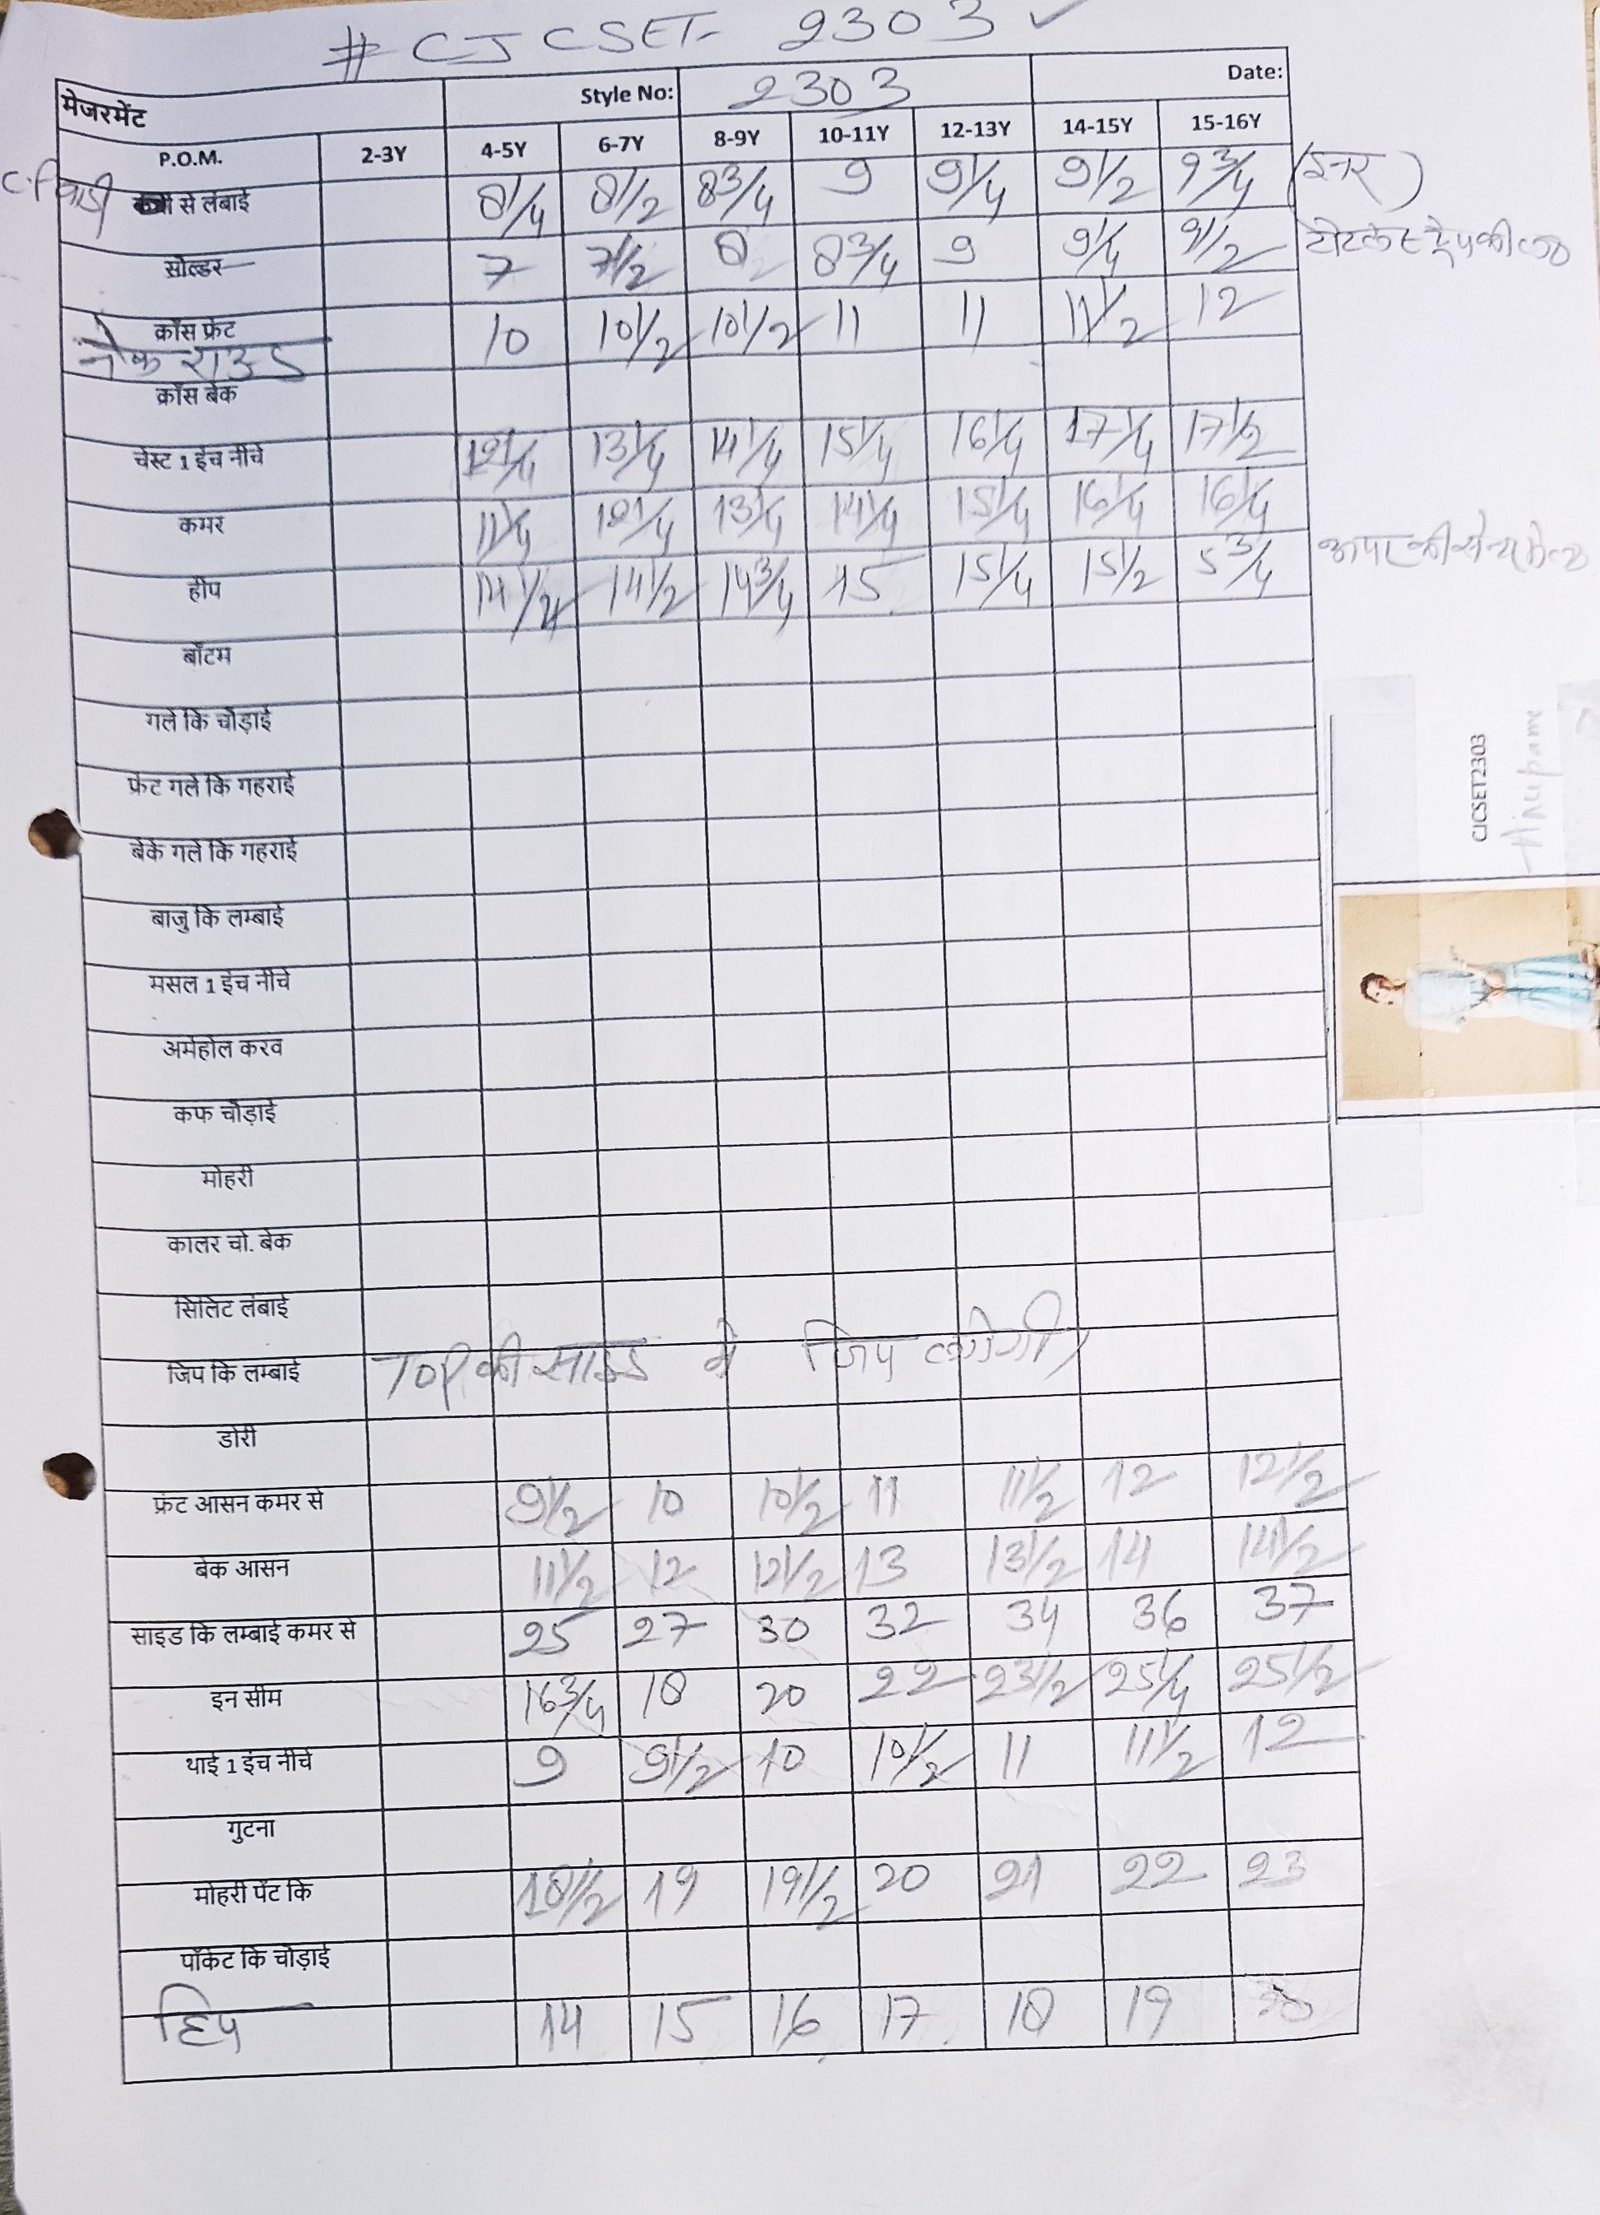 # CJCSET- 2303 ✓
मेजरमेंट Style No: 2303 Date:
P.O.M. 2-3Y 4-5Y 6-7Y 8-9Y 10-11Y 12-13Y 14-15Y 15-16Y
C.F से लंबाई 8 1/4 8 1/2 8 3/4 9 9 1/4 9 1/2 9 3/4 (इनर)
सोल्डर 7 7 1/2 8 8 3/4 9 9 1/4 9 1/2
क्रॉस फ्रेंट 10 10 1/2 10 1/2 11 11 11 1/2 12
नेक राउंड
क्रॉस बेक
चेस्ट 1 इंच नीचे 12 1/4 13 1/4 14 1/4 15 1/4 16 1/4 17 1/4 17 1/2
कमर 11 1/4 12 1/4 13 1/4 14 1/4 15 1/4 16 1/4 16 1/4
हीप 14 1/4 14 1/2 14 3/4 15 15 1/4 15 1/2 5 3/4
बॉटम
गले कि चौड़ाई
फ्रेंट गले कि गहराई
बेके गले कि गहराई
बाजु कि लम्बाई
मसल 1 इंच नीचे
अर्महोल करव
कफ चौड़ाई
मोहरी
कालर चो. बेक
सिलिट लंबाई
जिप कि लम्बाई TOP की साइड मे जिप लगेगी
डोरी
फ्रंट आसन कमर से 9 1/2 10 10 1/2 11 11 1/2 12 12 1/2
बेक आसन 11 1/2 12 12 1/2 13 13 1/2 14 14 1/2
साइड कि लम्बाई कमर से 25 27 30 32 34 36 37
इन सीम 16 3/4 18 20 22 23 1/2 25 1/4 25 1/2
थाई 1 इंच नीचे 9 9 1/2 10 10 1/2 11 11 1/2 12
गुटना
मोहरी पेंट कि 18 1/2 19 19 1/2 20 21 22 23
पॉकेट कि चौड़ाई
हिप 14 15 16 17 18 19
CJCSET2303